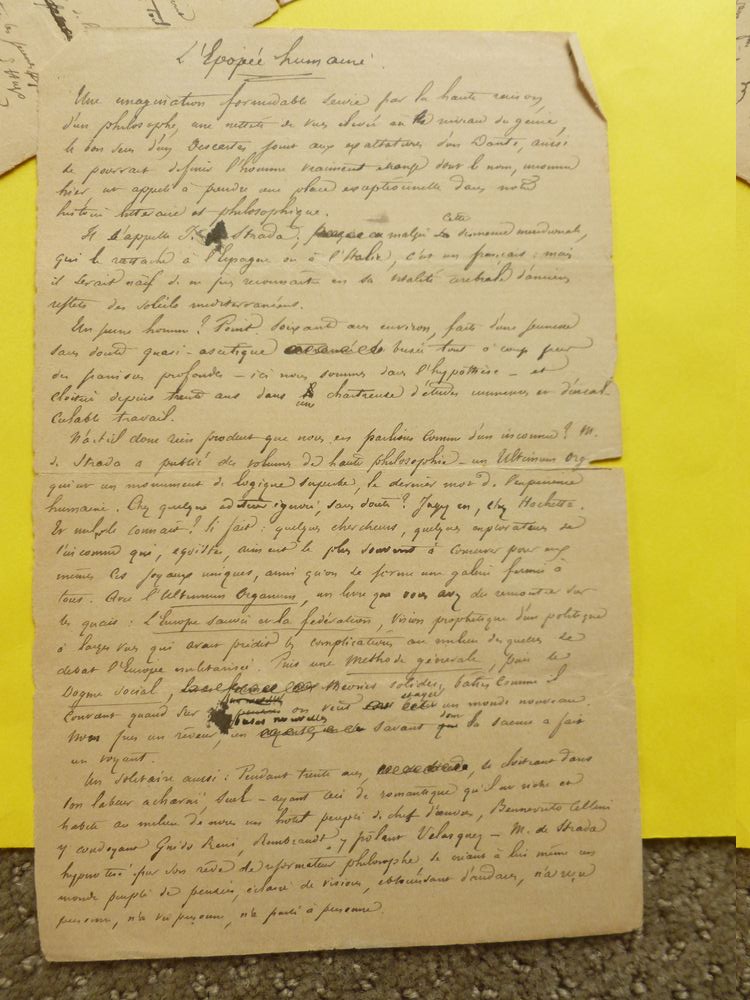 L'Epopée humaine.
Une imagination formidable servie par la haute raison
d'un philosophe, une netteté de vues élevée au niveau du génie,
le bon sens d'un Descartes joint aux exaltations d'un Dante, ainsi
se pourrait définir l'homme vraiment étrange dont le nom, inconnu
hier est appelé à prendre une place exceptionnelle dans notre
histoire littéraire et philosophique.
Il s'appelle J. Strada. malgré Cette
qui le rattache à l'Espagne ou à l'Italie, c'est un français ; mais
il serait naïf de ne pas reconnaître en sa vitalité cérébrale d'anciens
reflets des soleils méditerranéens.
Un jeune homme ? Point. soixante ans environ, faits d'une jeunesse
sans doute quasi-ascétique tout à coup pour
des passions profondes – ici nous sommes dans l'hypothèse – et
cloîtré depuis trente ans dans une chartreuse d'études immenses et d'incal-
culable travail.
N'a-t-il donc rien produit que nous en parlions comme d'un inconnu ? M.
de Strada a publié des volumes de haute philosophie – un Ultimum Org
qui est un monument de logique superbe, le dernier mot de l'expérience
humaine. Chez quelque éditeur ignoré, sans doute ? Jugez en, chez Hachette.
Et nul le connait ? Si fait : quelques chercheurs, quelques explorateurs de
l'inconnu qui, égoïstes, aiment le plus souvent à conserver pour eux
mêmes ces joyaux uniques, ainsi qu'on se forme une galerie fermée à
tous. Avec l'Ultimum Organum, un livre que vous avez dû rencontrer sur
les quais : L'Europe sauvée et la fédération, vision prophétique d'un politique
à larges vues qui avait prédit les complications au milieu desquelles se
débat l'Europe militarisée. Puis une Méthode générale, puis le
Dogme social, théories solides, bâties comme il
convient quand sur bases nouvelles on veut un monde nouveau
Non pas un rêveur, un savant dont la science a fait
un voyant.
Un solitaire aussi : Pendant trente ans, se cloîtrant dans
son labeur acharné, seul – ayant ceci de romantique qu'il est riche et
habite au milieu de nous un hôtel peuplé de chef d'œuvres, Benvenuto Cellini
y coudoyant Guido Reni, Rembrandt y frôlant Velasquez – M. de Strada
hypnotisé par son rêve de réformateur philosophe, se créant à lui même un
monde peuplé de pensées, éclairé de visions, éblouissant d'audaces, n'a reçu
personne, n'a vu personne, n'a parlé à personne.